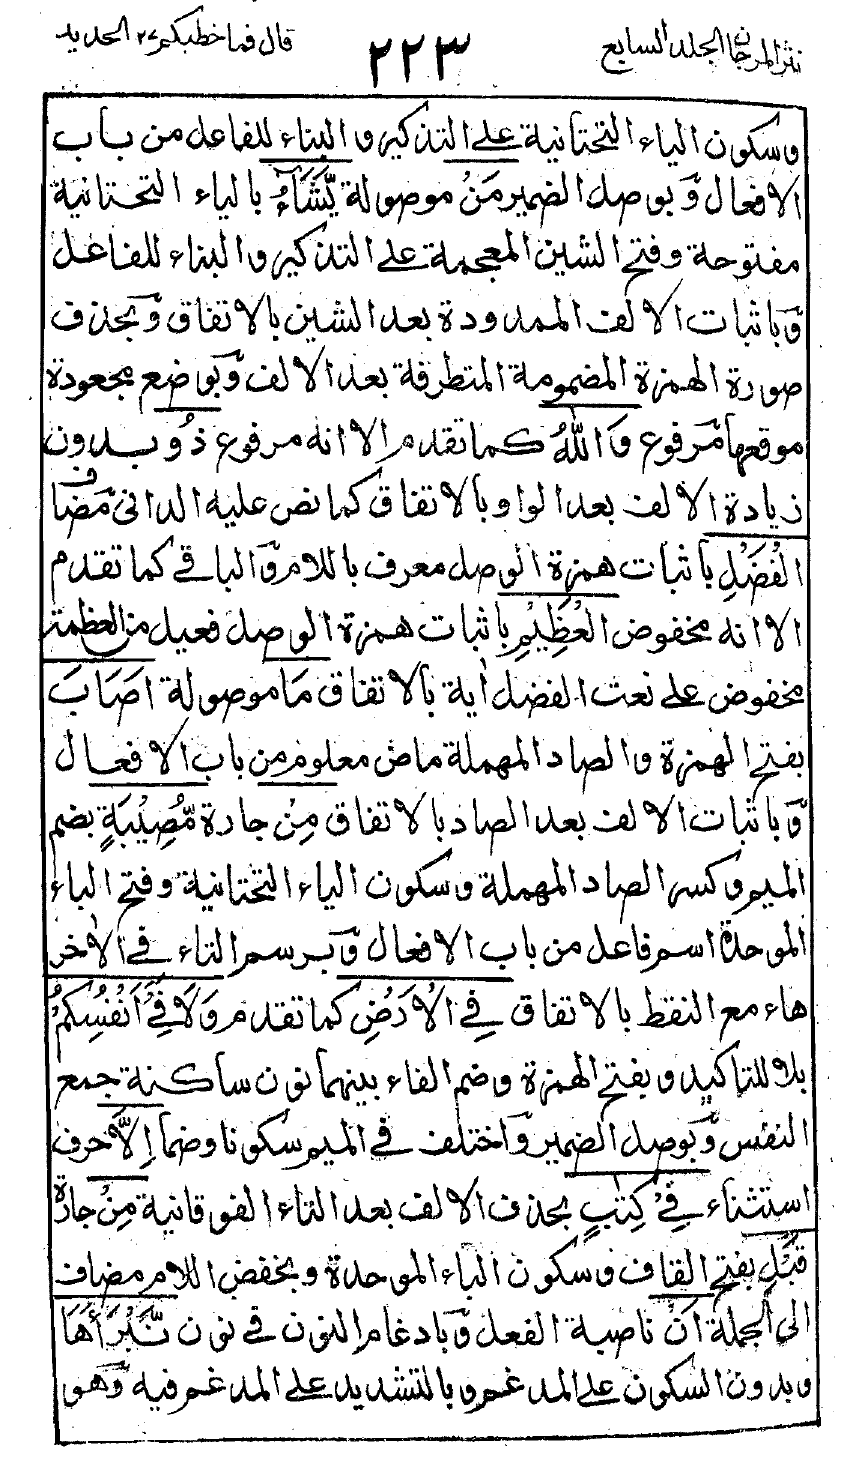 نثر المرجان الجلد السابع
٢٢٣
قال فما خطبكم ٢٧ الحديد
وسكون الياء التحتانية على التذكير و البناء للفاعل من باب
الافعال وَبوصل الضمير مَنْ موصولة يَّشَآءُ بالياء التحتانية
مفتوحة وفتح الشين المعجمة على التذكير والبناء للفاعل
وَباثبات الالف الممدودة بعد الشين بالاتفاق وَبحذف
صورة الهمزة المضمومة المتطرفة بعد الالف وَبوضع مجعودة
موقعها مرفوع وَاللّٰهُ كما تقدم الا انه مرفوع ذُو بدون
زيادة الالف بعد الواو بالاتفاق كما نص عليه الدانى مضاف
الْفَضْلِ باثبات همزة الوصل معرف باللام وَالباقي كما تقدم
الا انه مخفوض الْعَظِيْمِ باثبات همزة الوصل فعيل من العظمة
مخفوض على نعت الفضل اٰية بالاتفاق مَا موصولة اَصَابَ
بفتح الهمزة والصاد المهملة ماض معلوم من باب الافعال
وَباثبات الالف بعد الصاد بالاتفاق مِنْ جارة مُّصِيْبَةٍ بضم
الميم وكسر الصاد المهملة وسكون الياء التحتانية وفتح الباء
الموحدة اسم فاعل من باب الافعال وَبرسم التاء في الاٰخر
هاء مع النقط بالاتفاق فِي الْاَرْضِ كما تقدم وَلَا فِيْ اَنْفُسِكُمْ
بلا للتاكيد و بفتح الهمزة وضم الفاء بينهما نون ساكنة جمع
النفس وَبوصل الضمير وَاختلف في الميم سكونا وضما اِلَّا حرف
استثناء فِيْ كِتٰبٍ بحذف الالف بعد التاء الفوقانية مِنْ جارة
قَبْلِ بفتح القاف وسكون الباء الموحدة وبخفض اللام مضاف
الى الجملة اَنْ ناصبة الفعل وَبادغام النون في نون نَّبْرَاَهَا
وبدون السكون على المدغم وبالتشديد على المدغم فيه وَهو